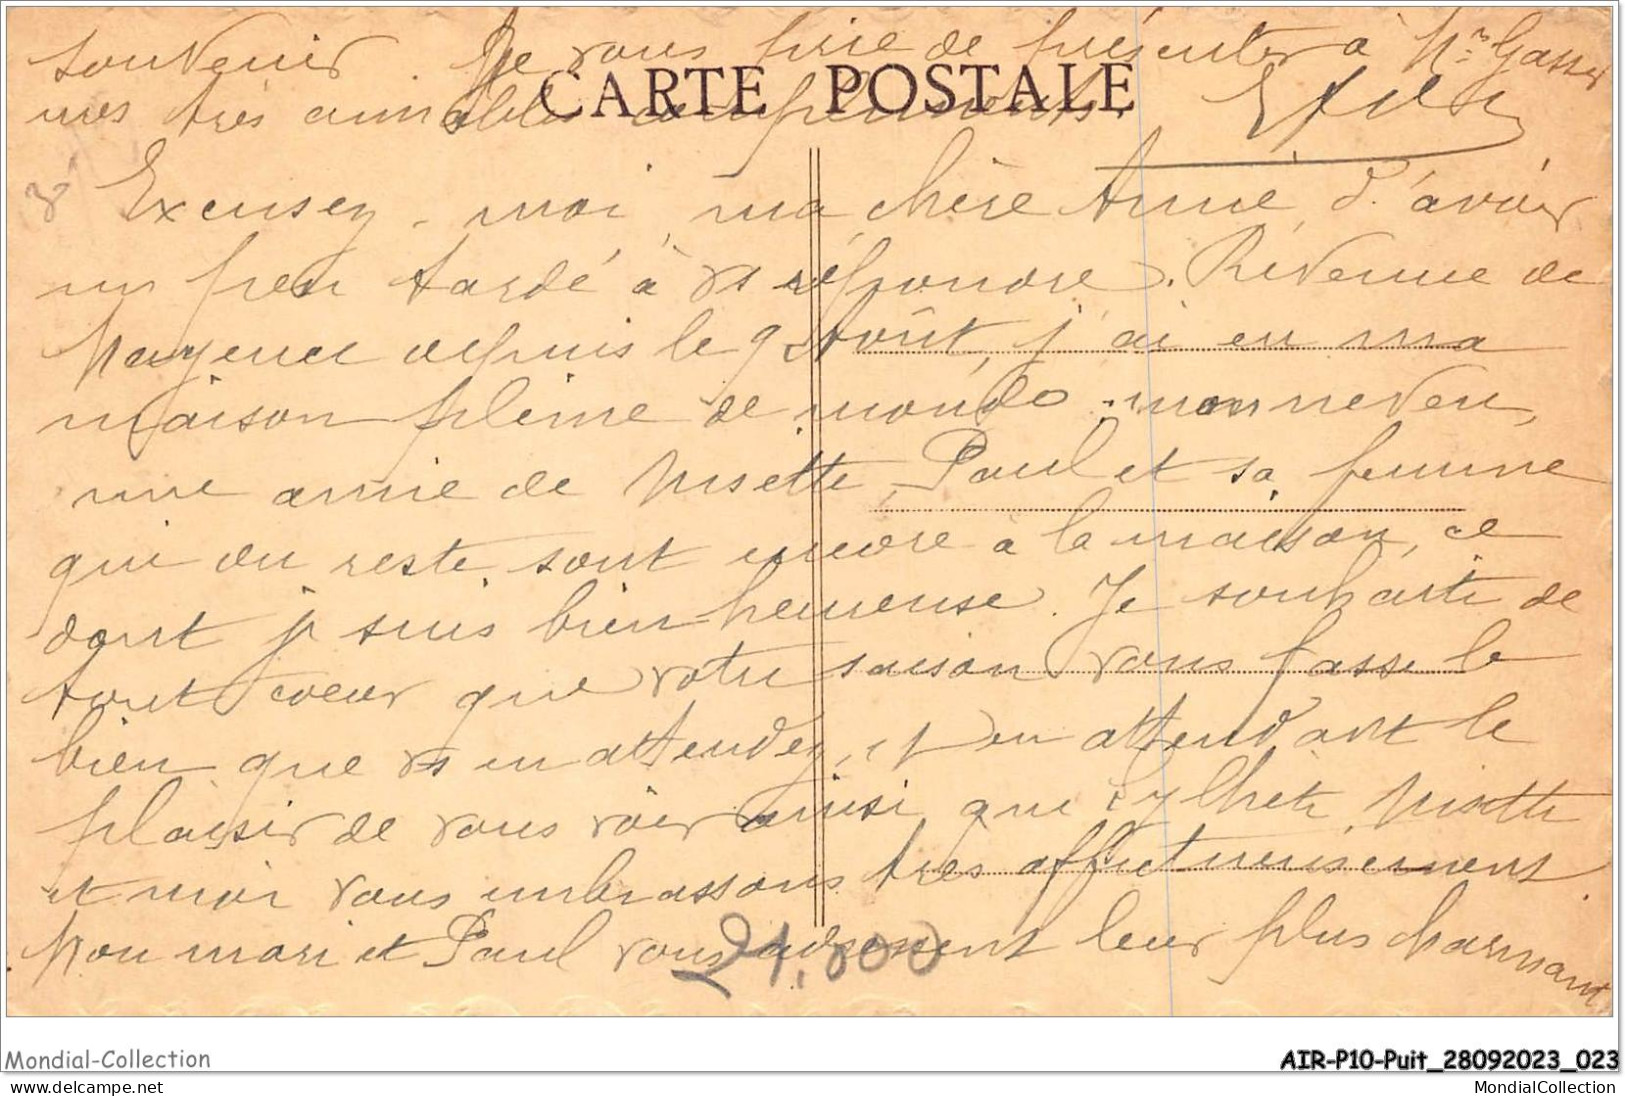 souvenir. Je vous prie de présenter à Mr Gasser
CARTE POSTALE
mes très aimables compliments.
Excusez-moi, ma chère Amie, d'avoir
un peu tardé à vs répondre. Revenue de
Mayence depuis le 9 Août, j'ai eu ma
maison pleine de monde. mon neveu,
une amie de Musette, Paul et sa femme
qui du reste sont encore à la maison, ce
dont je suis bien heureuse. Je souhaite de
tout cœur que votre saison vous fasse le
bien que vs en attendez, et en attendant le
plaisir de vous voir ainsi que Musette
et moi vous embrassons très affectueusement.
Mon mari et Paul vous adressent leur plus charmant
21.800
Mondial-Collection
AIR-P10-Puit_28092023_023
www.delcampe.net
MondialCollection